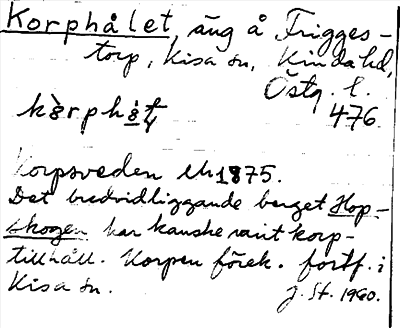 Korphålet, äng å Frigges-
torp, Kisa sn, Kinda hd,
Östg. l.
476.
Korpsveden Uh 1875.
Det bredvidliggande berget Hop-
skogen har kanske varit korp-
tillhåll. Korpen förek. fortf. i
Kisa sn.
J. St. 1960.